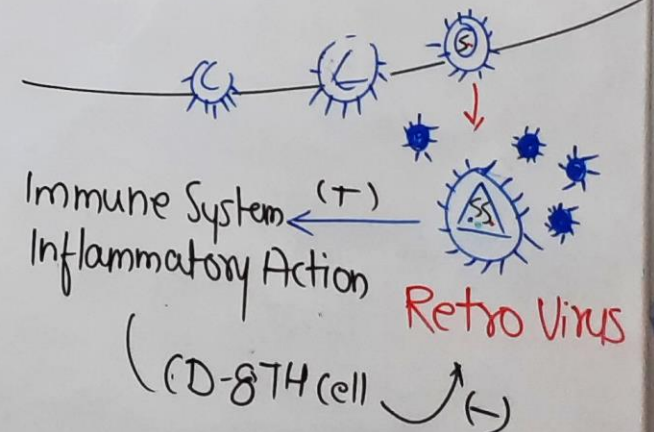 S.
SS
(+)
Immune System
Inflammatory Action
Retro Virus
CD-8TH Cell
(-)